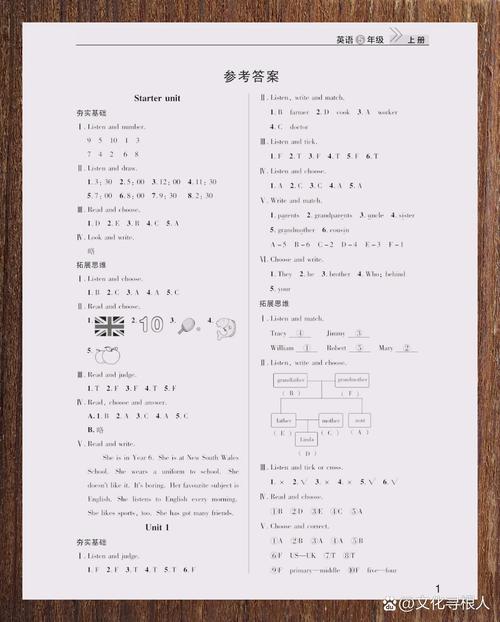 英语⑤年级 上册
参考答案
Starter unit
夯实基础
Ⅰ. Listen and number.
9 5 10 1 3
7 4 2 6 8
Ⅱ. Listen and draw.
1. 3:30 2. 5:00 3. 12:00 4. 11:30
5. 7:00 6. 8:00 7. 9:30 8. 2:30
Ⅲ. Read and choose.
1. D 2. E 3. B 4. C 5. A
Ⅳ. Look and write.
略
拓展思维
Ⅰ. Listen and choose.
1. B 2. C 3. A 4. A 5. B
Ⅱ. Read and choose.
1. 2. 10 3. 4.
5.
Ⅲ. Read and judge.
1. T 2. F 3. F 4. T 5. F
Ⅳ. Read, choose and answer.
A. 1. B 2. C 3. A 4. A 5. C
B. 略
Ⅴ. Read and write.
She is in Year 6. She is at New South Wales
School. She wears a uniform to school. She
doesn't like it. It's boring. Her favourite subject is
English. She listens to English every morning.
She likes sports, too. She has got many friends.
Unit 1
夯实基础
Ⅰ. Listen and judge.
1. F 2. F 3. T 4. T 5. T 6. F
Ⅱ. Listen, write and match.
1. B farmer 2. D cook 3. A worker
4. C doctor
Ⅲ. Listen and tick.
1. F 2. T 3. F 4. T 5. F 6. T
Ⅳ. Listen and choose.
1. A 2. C 3. B 4. A 5. A
Ⅴ. Write and match.
1. parents 2. grandparents 3. uncle 4. sister
5. grandmother 6. cousin
A-5 B-6 C-2 D-4 E-3 F-1
Ⅵ. Choose and write.
1. They 2. he 3. brother 4. Who; behind
5. your
拓展思维
Ⅰ. Listen and match.
Tracy ④ Jimmy ③
William ① Robert ⑤ Mary ②
Ⅱ. Listen, write and choose.
grandfather grandmother
( B ) ( F )
father mother aunt
( E ) ( C ) ( A )
Linda
( D )
Ⅲ. Listen and tick or cross.
1. × 2. √ 3. × 4. × 5. √ 6. √
Ⅳ. Read and choose.
①B ②D ③E ④C ⑤A
Ⅴ. Choose and correct.
①A ②B ③A ④A ⑤B
⑥F US—UK ⑦T ⑧T
⑨F primary—middle ⑩F five—four
1
@文化寻根人